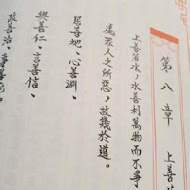 第八章 上善
上善若水，水善利萬物而不爭
處眾人之所惡，故幾於道。
居善地、心善淵、
與善仁、言善信、
政善治、事善